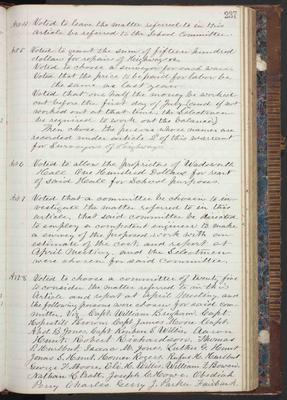 237
Art 4 Voted to leave the matter referred to in this
article be referred to the School Committee.
Art 5 Voted to grant the sum of fifteen hundred
dollars for repairs of Highways.
Voted to choose a surveyor for each ward
Voted that the price to be paid for labor be
the same as last year.
Voted that one half the money be worked
out before the first day of July (and if not
worked out at that time, the Selectmen
be required to work out the balance)
Then chose the persons whose names are
recorded under article 2d of this warrant
for Surveyors of Highways.
Art 6 Voted to allow the proprietors of Wadsworth
Hall One Hundred Dollars for rent
of said Hall for School purposes.
Art 7 Voted that a committee be chosen to in-
vestigate the matter referred to in this
article, that said committee be directed
to employ a competent engineer to make
a survey of the proposed work with an
estimate of the cost and report at
April meeting, and the Selectmen
were chosen for said Committee.
Art 8 Voted to choose a committee of twenty five
to consider the matter referred to in this
Article and report at April Meeting, and
the following persons were chosen for said com-
mittee, Viz Capt. William Brigham, Capt.
Hopestill Brown, Capt James Moore, Capt.
Abel B. Jones, Capt. Ephm S. Willis, Aaron
Hunt, Robert Richardson, Thomas
P. Hurlbut, Isaac N. Jones, Luther G. Hunt,
Jonas S. Hunt, Homer Rogers, Rufus H. Hurlbut
George F. Moore, Eli H. Willis, William F. Bowen,
Nathan L. Pratt, Joseph C. Howe, Obediah
Perry, Charles Gerry, J. Parker Fairbank,